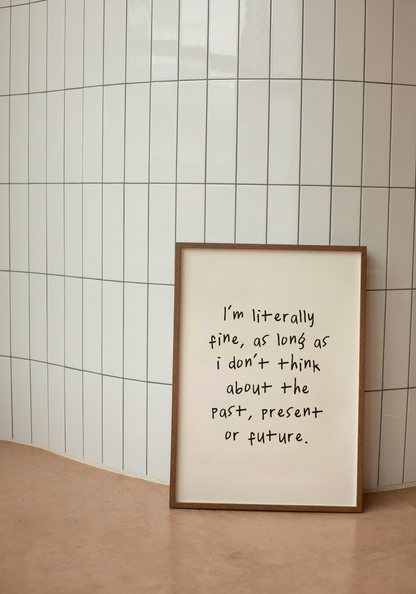 I'm literally
fine, as long as
i don't think
about the
past, present
or future.